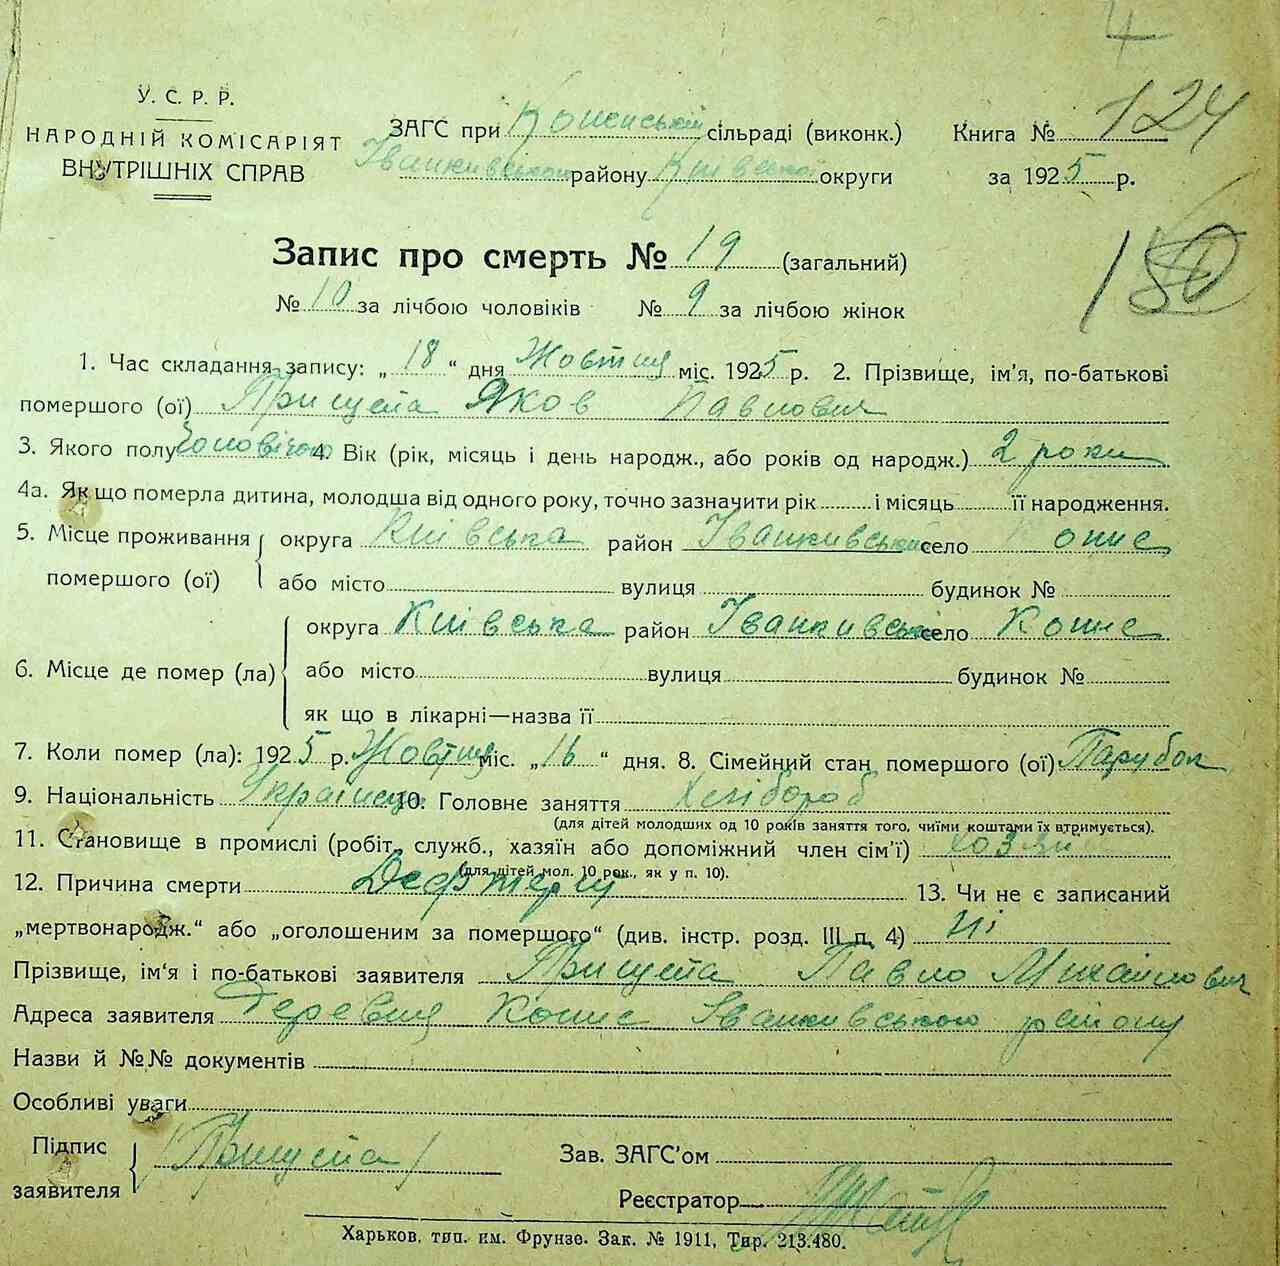 4
У. С. Р. Р.
НАРОДНІЙ КОМІСАРІЯТ
ВНУТРІШНІХ СПРАВ
ЗАГС при сільраді (виконк.)
Іванкивського району Київської округи
Книга № 124
за 1925 р.
180
Запис про смерть № 19 (загальний)
№ 10 за лічбою чоловіків № 9 за лічбою жінок
1. Час складання запису: „ 18 “ дня Жовтня міс. 1925 р. 2. Прізвище, ім'я, по-батькові
помершого (ої) Прищепа Яков Павлович
3. Якого полу Чоловічого 4. Вік (рік, місяць і день народж., або років од народж.) 2 роки
4а. Як що померла дитина, молодша від одного року, точно зазначити рік і місяць її народження.
5. Місце проживання помершого (ої) округа Київська район Іванкивський село
або місто вулиця будинок №
6. Місце де помер (ла) округа Київська район Іванкивський село
або місто вулиця будинок №
як що в лікарні—назва її
7. Коли помер (ла): 1925 р. Жовтня міс. „ 16 “ дня. 8. Сімейний стан помершого (ої) Парубок
9. Національність Українець 10. Головне заняття Хлібороб
(для дітей молодших од 10 років заняття того, чиїми коштами їх втримується).
11. Становище в промислі (робіт., служб., хазяїн або допоміжний член сім'ї) хозяин
(для дітей мол. 10 рок., як у п. 10).
12. Причина смерти 13. Чи не є записаний
„мертвонародж.“ або „оголошеним за помершого“ (див. інстр. розд. III п. 4) Ні
Прізвище, ім'я і по-батькові заявителя Прищепа Павло Михайлович
Адреса заявителя Деревня Іванкивського району
Назви й №№ документів
Особливі уваги
Підпис заявителя /Прищепа/
Зав. ЗАГС'ом
Реєстратор
Харьков, тип. им. Фрунзе. Зак. № 1911, Тир. 213.480.